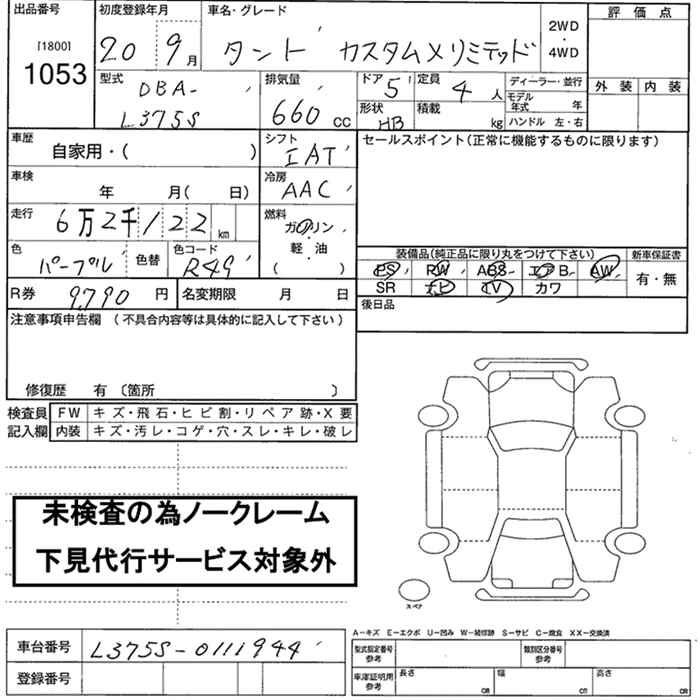 出品番号 [1800] 1053
初度登録年月 20 9月
車名・グレード タント カスタムXリミテッド
2WD・4WD
評価点
外装 内装
型式 DBA-L375S
排気量 660 CC
ドア 5
定員 4人
形状 HB
積載 kg
ディーラー・並行
モデル年式 年
ハンドル 左・右
車歴 自家用・( )
シフト IAT
セールスポイント(正常に機能するものに限ります)
車検 年 月( 日)
冷房 AAC
走行 6万2千122km
燃料 ガソリン・軽油・( )
色 パープル
色替
色コード R49
装備品(純正品に限り丸をつけて下さい)
PS RW ABS エアB AW
SR ナビ TV カワ
新車保証書 有・無
R券 9,790円
名変期限 月 日
後日品
注意事項申告欄(不具合内容等は具体的に記入して下さい)
修復歴 有〔箇所 〕
検査員記入欄
FW キズ・飛石・ヒビ割・リペア跡・X要
内装 キズ・汚レ・コゲ・穴・スレ・キレ・破レ
未検査の為ノークレーム
下見代行サービス対象外
スペア
A-キズ E-エクボ U-凹み W-補修跡 S-サビ C-腐食 XX-交換済
車台番号 L375S-0111944
登録番号
型式指定番号参考
類別区分番号参考
車庫証明用参考 長さ cm 幅 cm 高さ cm